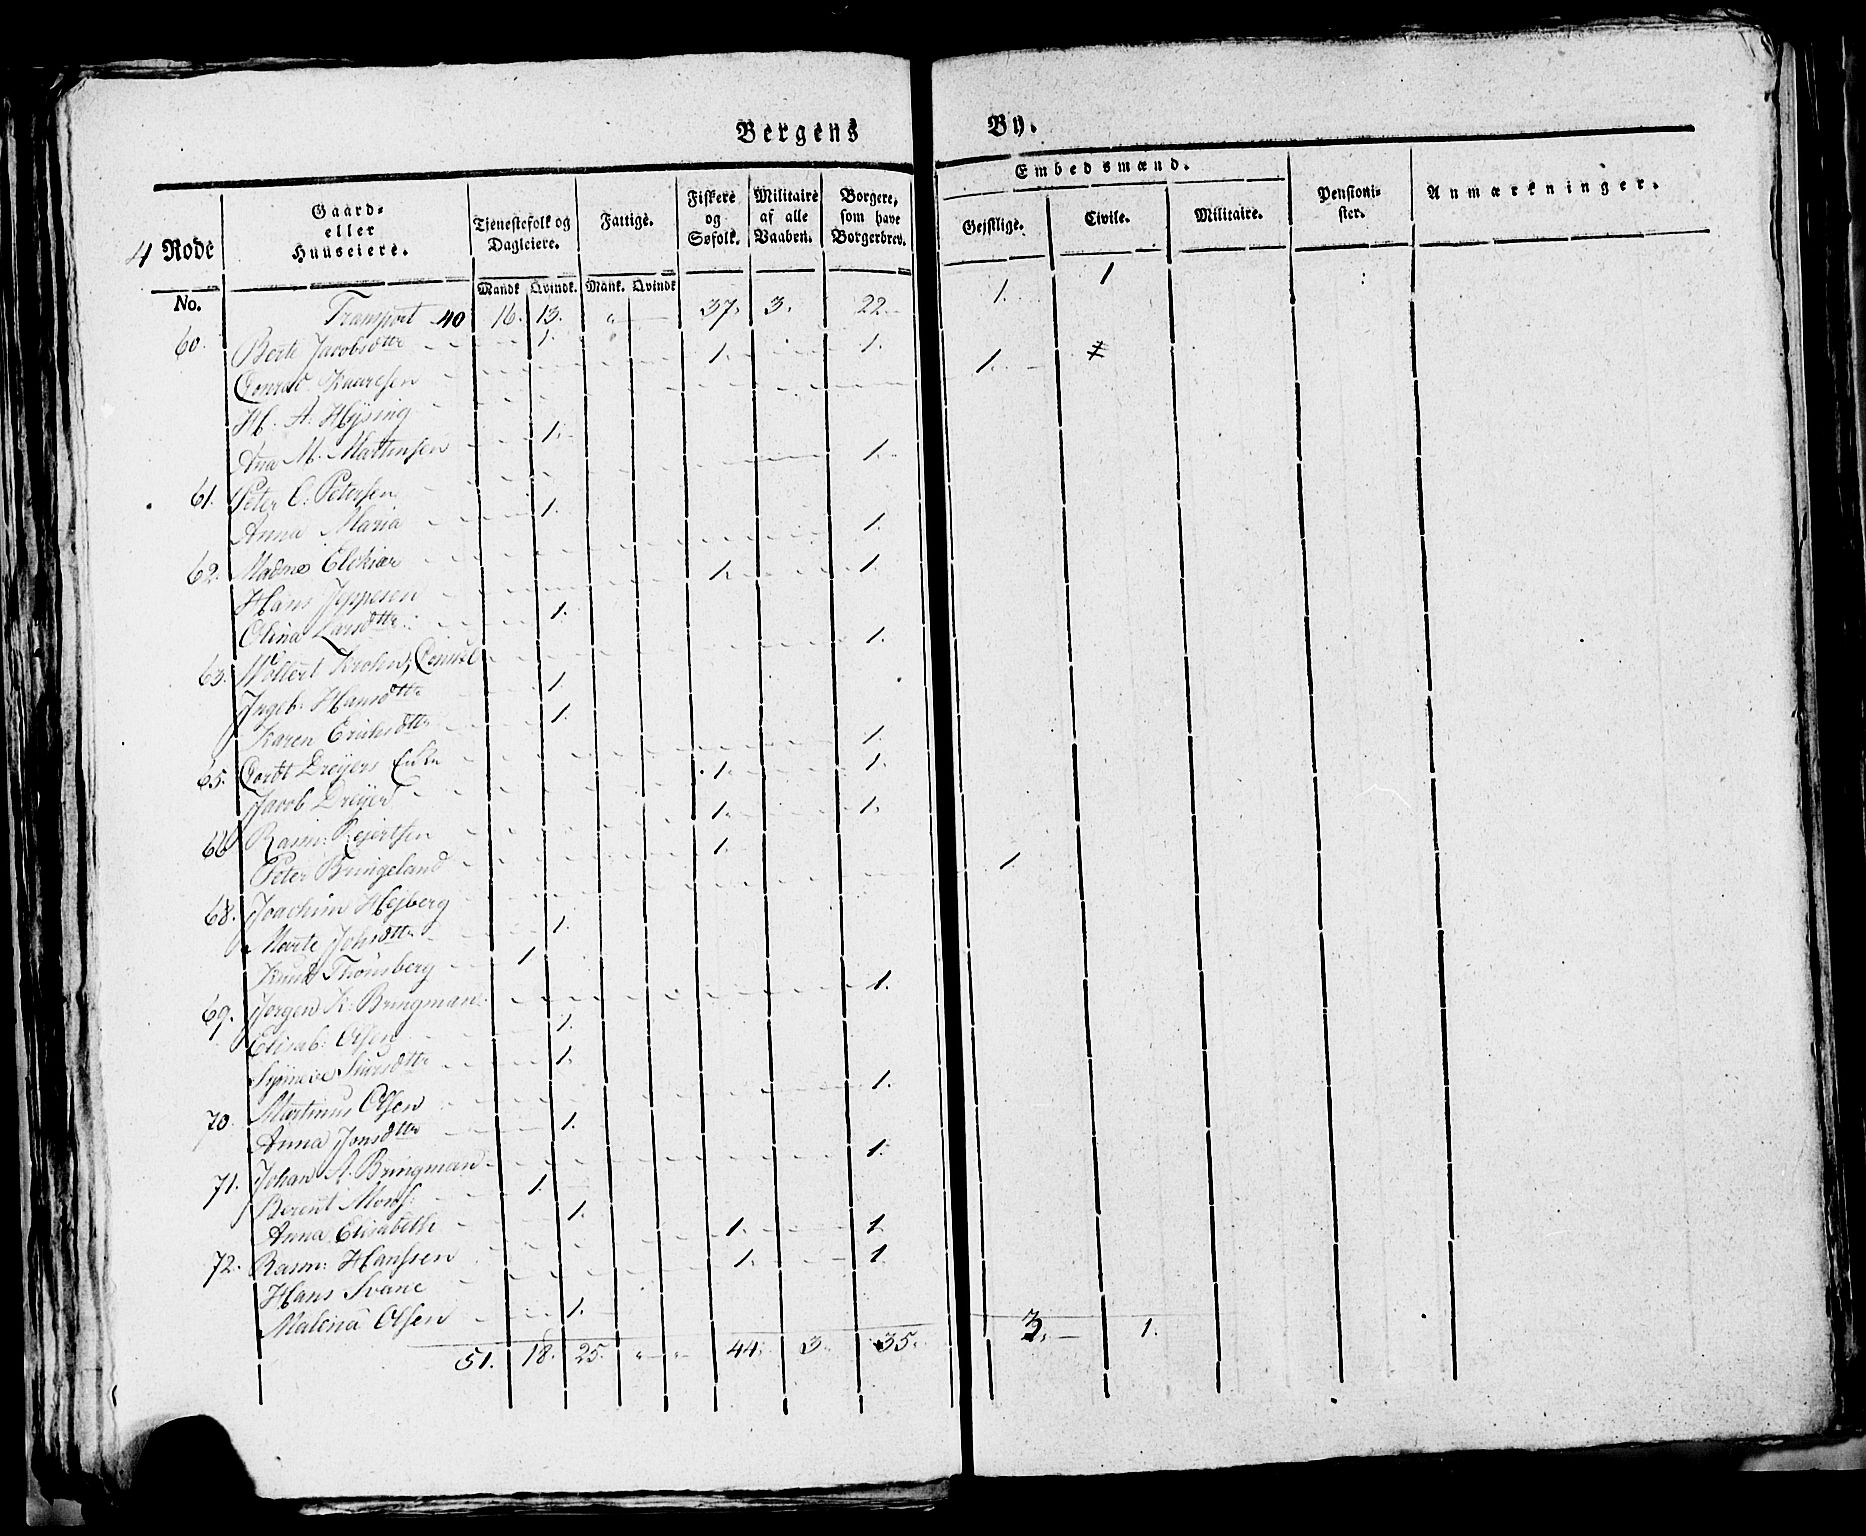 Bergens By.
4 Rode
Gaard- eller Huuseiere.
Tienestefolk og Dagleiere.
Fattige.
Fiskere og Søfolk.
Militaire af alle Vaaben.
Borgere, som have Borgerbrev.
Embedsmænd.
Geistlige. Civile. Militaire.
Pensionister.
Anmærkninger.
No. Mandk Qvindk. Mank. Qvindk
Transport 40 16. 13. 37. 3. 22. 1. 1
60. Berte Jacobsdttr 1.
Conrad 1. 1.
H. A. Hysing 1.
Ana M. Martensen 1.
61. Peter C. Petersen 1.
Anna Maria 1.
62. Madme 1.
Hans Jeppesen 1. 1.
Olina Larsdttr 1.
63. Wollert Krohn, Consul 1.
Ingeb. Hansdttr 1.
Karen Erichsdttr 1.
65. Cordt Dreyers Enke 1.
Jacob Dreyer 1. 1.
66 Rasm: 1. 1.
Peter Bringeland 1.
68. Joachim Hejberg 1.
Johsdttr 1.
Knud Thonsberg 1.
69. Jørgen K. Bringman 1.
Elisab: Olsen 1.
Siursdttr 1.
70. Martinus Olsen 1.
Anna Jonsdttr 1.
71. Johan A. Bringman 1.
Berent Mons. 1.
Anna Elisabeth 1.
72. Rasm: Hanssen 1. 1
Hans Svane 1. 1
Malena Olsen 1.
51. 18. 25. 44. 3. 35. 3. 1.